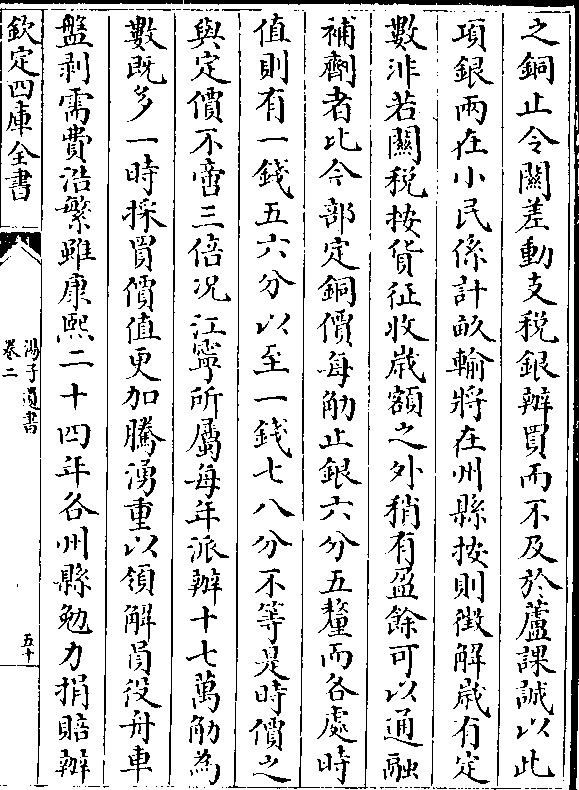 之銅止令關差動支稅銀辦買而不及於蘆課誠以此
項銀兩在小民係計畝輸將在州縣按則徵解歲有定
數非若關稅按貨征收歲額之外稍有盈餘可以通融
補劑者比今部定銅價每觔止銀六分五釐而各處時
值則有一錢五六分以至一錢七八分不等是時價之
與定價不啻三倍况江寧所屬每年派辦十七萬觔為
數既多一時採買價值更加騰湧重以領解員役舟車
盤剥需費浩繁雖康熙二十四年各州縣勉力捐賠辦
欽定四庫全書
湯子遺書
卷二
五十